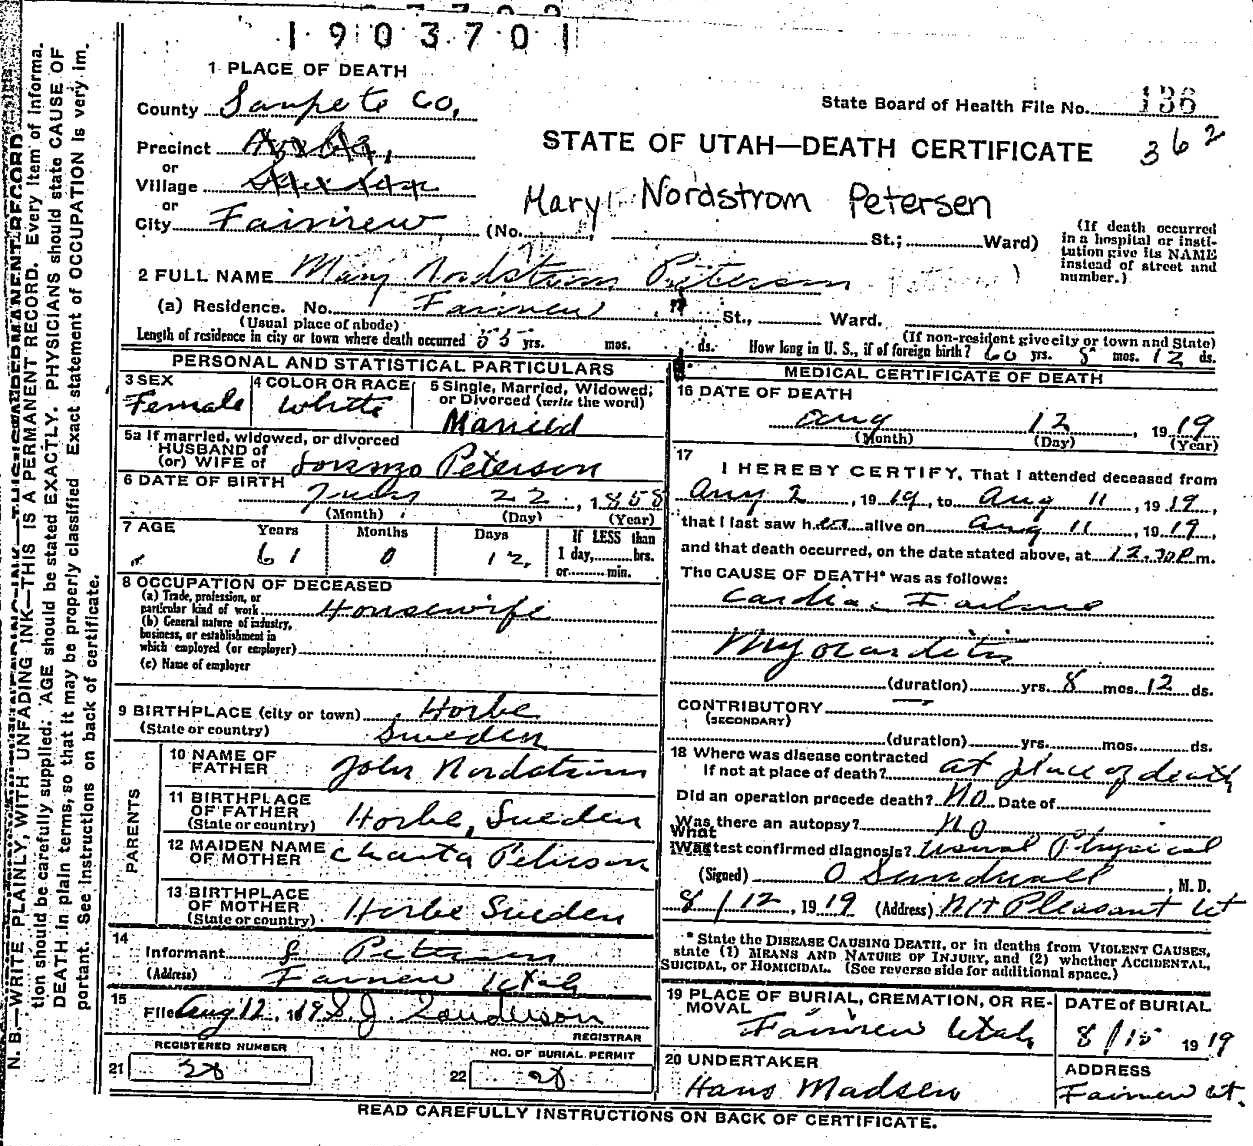 1903701
1 PLACE OF DEATH
County Sanpete Co,
State Board of Health File No. 136
362
STATE OF UTAH—DEATH CERTIFICATE
Precinct
or
Village
or
City Fairview (No. St.; Ward)
Mary Nordstrom Petersen
(If death occurred in a hospital or insti-
tution give its NAME
instead of street and
number.)
2 FULL NAME Mary Nordstrom Peterson
(a) Residence. No. Fairview St., Ward.
(Usual place of abode)
(If non-resident give city or town and State)
Length of residence in city or town where death occurred 55 yrs. mos. ds. How long in U. S., if of foreign birth? 60 yrs. 5 mos. 12 ds.
PERSONAL AND STATISTICAL PARTICULARS
3 SEX
Female
4 COLOR OR RACE
White
5 Single, Married, Widowed,
or Divorced (write the word)
Married
5a If married, widowed, or divorced
HUSBAND of
(or) WIFE of Lorenzo Peterson
6 DATE OF BIRTH
July 22, 1858
(Month) (Day) (Year)
7 AGE Years Months Days If LESS than
1 day, hrs.
or min.
61 0 12
8 OCCUPATION OF DECEASED
(a) Trade, profession, or
particular kind of work Housewife
(b) General nature of industry,
business, or establishment in
which employed (or employer)
(c) Name of employer
9 BIRTHPLACE (city or town) Horbe
(State or country) Sweden
PARENTS
10 NAME OF
FATHER John Nordstrom
11 BIRTHPLACE
OF FATHER
(State or country) Horbe, Sweden
12 MAIDEN NAME
OF MOTHER Charsta Peterson
13 BIRTHPLACE
OF MOTHER
(State or country) Horbe Sweden
14
Informant Peterson
(Address) Fairview Utah
15
File Aug 12, 19 S. J. Sanderson
REGISTRAR
REGISTERED NUMBER
21 28
NO. OF BURIAL PERMIT
22 28
MEDICAL CERTIFICATE OF DEATH
16 DATE OF DEATH
Aug 12, 1919
(Month) (Day) (Year)
17
I HEREBY CERTIFY, That I attended deceased from
Aug 2, 1919, to Aug 11, 1919,
that I last saw her alive on Aug 11, 1919,
and that death occurred, on the date stated above, at 12.30 P.m.
The CAUSE OF DEATH* was as follows:
Cardiac Failure
Myocarditis
(duration) yrs. 8 mos. 12 ds.
CONTRIBUTORY —
(SECONDARY)
(duration) yrs. mos. ds.
18 Where was disease contracted
If not at place of death? at place of death
Did an operation precede death? No Date of
Was there an autopsy? no
What test confirmed diagnosis? usual Physical
(Signed) O Sundwall, M. D.
8/12, 1919 (Address) Mt Pleasant Ut
* State the DISEASE CAUSING DEATH, or in deaths from VIOLENT CAUSES,
state (1) MEANS AND NATURE OF INJURY, and (2) whether ACCIDENTAL,
SUICIDAL, or HOMICIDAL. (See reverse side for additional space.)
19 PLACE OF BURIAL, CREMATION, OR RE-
MOVAL
Fairview Utah,
DATE of BURIAL
8/15 1919
20 UNDERTAKER
Hans Madsen
ADDRESS
Fairview Ut.
READ CAREFULLY INSTRUCTIONS ON BACK OF CERTIFICATE.
N. B.—WRITE PLAINLY, WITH UNFADING INK—THIS IS A PERMANENT RECORD. Every Item of informa-
tion should be carefully supplied. AGE should be stated EXACTLY. PHYSICIANS should state CAUSE OF
DEATH in plain terms, so that it may be properly classified. Exact statement of OCCUPATION is very im-
portant. See instructions on back of certificate.